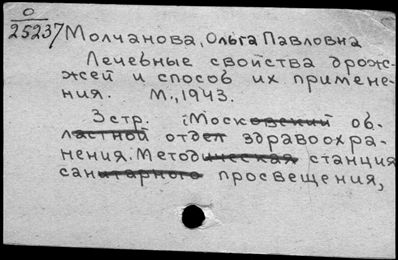 О
25237
Молчанова, Ольга Павловна
Лечебные свойства дрож-
жей и способ их примене-
ния. М., 1943.
3 стр. (Московский об-
ластной отдел здравоохра-
нения. Методическая станция
санитарного просвещения,